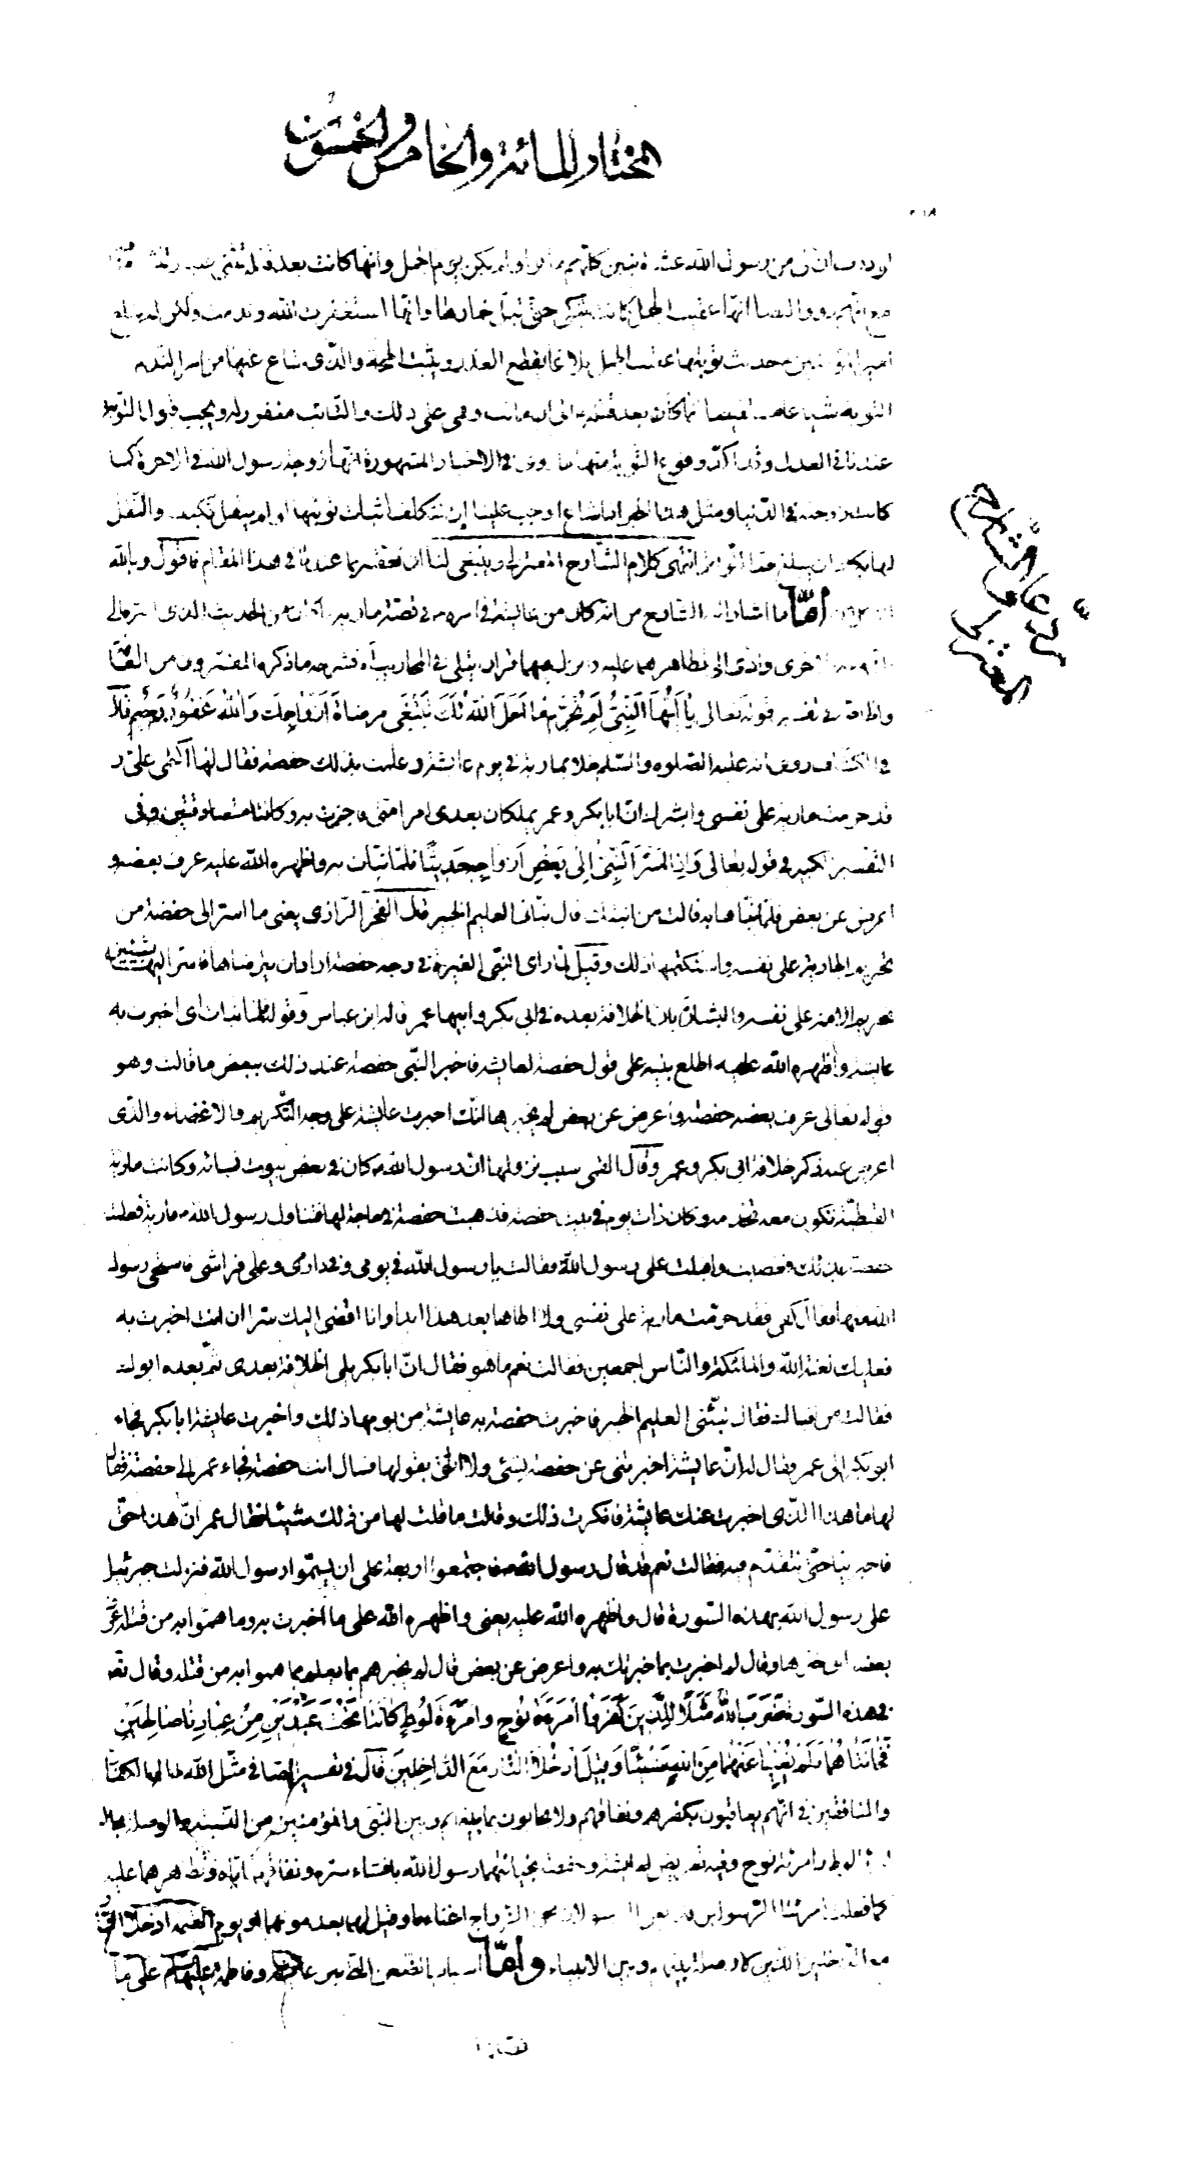 المختار المائة والخامس والخمسون
من رسول الله عشرة بنين كلهم ولو لم يكن يوم الجمل وانها كانت بعد قتله تثني عليه
عقيب الجمل كانت تبكي حتى تبل خمارها وانها استغفرت الله وندمت ولكن لم يبلغ
امير المؤمنين حديث توبتها عقيب الجمل بلاغا يقطع العذر ويثبت الحجة والذي شاع عنها من امر الندم
التوبة شياعا مستفيضا انما كان بعد قتله الى ان ماتت وهي على ذلك والتائب مغفور له ويجب قبول التوبة
عندنا في العدل وقد اكد وقوع التوبة منها ما روى في الاخبار المشهورة انها زوجة رسول الله في الاخرة كما
كانت زوجته في الدنيا ومثل هذا الخبر اذا شاع اوجب علينا ان نتكلف اثبات توبتها لو لم ينقل فكيف والنقل
لها يكاد ان يبلغ حد التواتر انتهى كلام الشارح المعتزلي وينبغي لنا ان نعقبه بما عندنا في هذا المقام فاقول وبالله
اما ما اشار اليه الشارح من انه كان من عايشة في امره في قصة مارية ما كان من الحديث الذي اسر الى
الاخرى وادى الى تظاهرهما عليه وانزل فيهما قران يتلى في المحاريب فشرحه ما ذكره المفسرون من العامة
والخاصة في تفسير قوله تعالى يا ايها النبي لم تحرم ما احل الله لك تبتغي مرضاة ازواجك والله غفور رحيم قال
في الكشاف روى انه عليه الصلوة والسلم خلا بمارية في يوم عايشة وعلمت بذلك حفصة فقال لها اكتمي علي و
قد حرمت مارية على نفسي وابشرك ان ابا بكر وعمر يملكان بعدي امر امتي فاخبرت به وكانتا متصادقتين وفي
التفسير الكبير في قوله تعالى واذ اسر النبي الى بعض ازواجه حديثا فلما نبات به واظهره الله عليه عرف بعضه و
اعرض عن بعض فلما نباها به قالت من انبئك قال نبأني العليم الخبير قال الفخر الرازي يعني ما اسر الى حفصة من
تحريم الجارية على نفسه واستكتمها ذلك وقيل لما راى النبي الغيرة في وجه حفصة اراد ان يترضاها فاسر اليها بشيئين
تحريم الامة على نفسه والبشارة بان الخلافة بعده في ابي بكر وابيها عمر قاله ابن عباس وقوله فلما نبات به اي اخبرت به
عايشة واظهره الله عليه اطلع نبيه على قول حفصة لعايشة فاخبر النبي حفصة عند ذلك ببعض ما قالت وهو
قوله تعالى عرف بعضه حفصة واعرض عن بعض لم يخبرها انك اخبرت عايشة على وجه التكرم والاغضاء والذي
اعرض عنه ذكر خلافة ابي بكر وعمر وقال القمي سبب نزولها ان رسول الله كان في بعض بيوت نسائه وكانت مارية
القبطية تكون معه تخدمه وكان ذات يوم في بيت حفصة فذهبت حفصة في حاجة لها فتناول رسول الله مارية فعلمت
حفصة بذلك فغضبت واقبلت على رسول الله فقالت يا رسول الله في يومي وفي داري وعلى فراشي فاستحى رسول
الله منها فقال كفى فقد حرمت مارية على نفسي ولا اطاها بعد هذا ابدا وانا افضي اليك سرا ان انت اخبرت به
فعليك لعنة الله والملئكة والناس اجمعين فقالت نعم ما هو فقال ان ابا بكر يلي الخلافة بعدي ثم بعده ابوك
فقالت من انبأك فقال نبئني العليم الخبير فاخبرت حفصة به عايشة من يومها ذلك واخبرت عايشة ابا بكر فجاء
ابو بكر الى عمر وقال له ان عايشة اخبرتني عن حفصة بشيء ولا اثق بقولها فسال انت حفصة فجاء عمر الى حفصة فقال
لها ما هذا الذي اخبرت عنك عايشة فانكرت ذلك وقالت ما قلت لها من ذلك شيئا فقال عمر ان هذا حق
فاخبرينا حتى نتقدم فيه فقالت نعم قد قال رسول الله فاجتمعوا اربعة على ان يسموا رسول الله فنزلت جبرئيل
على رسول الله بهذه السورة قال واظهره الله عليه يعني واظهره الله على ما اخبرت به وما هموا به من قتله عرف
بعضه اي خبرها وقال لم اخبرت بما خبرتك به واعرض عن بعض قال لم يخبرهم بما يعلم بما هموا به من قتله وقال تعالى
في هذه السورة ضرب الله مثلا للذين كفروا امرأة نوح وامرأة لوط كانتا تحت عبدين من عبادنا صالحين
فخانتاهما فلم يغنيا عنهما من الله شيئا وقيل ادخلا النار مع الداخلين قال في تفسير الصافي مثل الله حال الكفار
والمنافقين في انهم يعاقبون بكفرهم ونفاقهم ولا يحابون بما بينهم وبين النبي والمؤمنين من النسبة والوصلة بحال
امرأة لوط وامرأة نوح وفيه تعريض بعايشة وحفصة بخيانتهما رسول الله بافشاء سره ونفاقهما اياه وتظاهرهما عليه
كما فعلت امرأتا الرسولين فلم يغن الرسولان بحق الزواج اغناء ما وقيل لهما بعد موتهما او يوم القيمة ادخلا النار
مع الداخلين الذين لا وصلة بينهم وبين الانبياء واما عايشة وفاطمة عليها على ما
رد على الشارح
المعتزلي